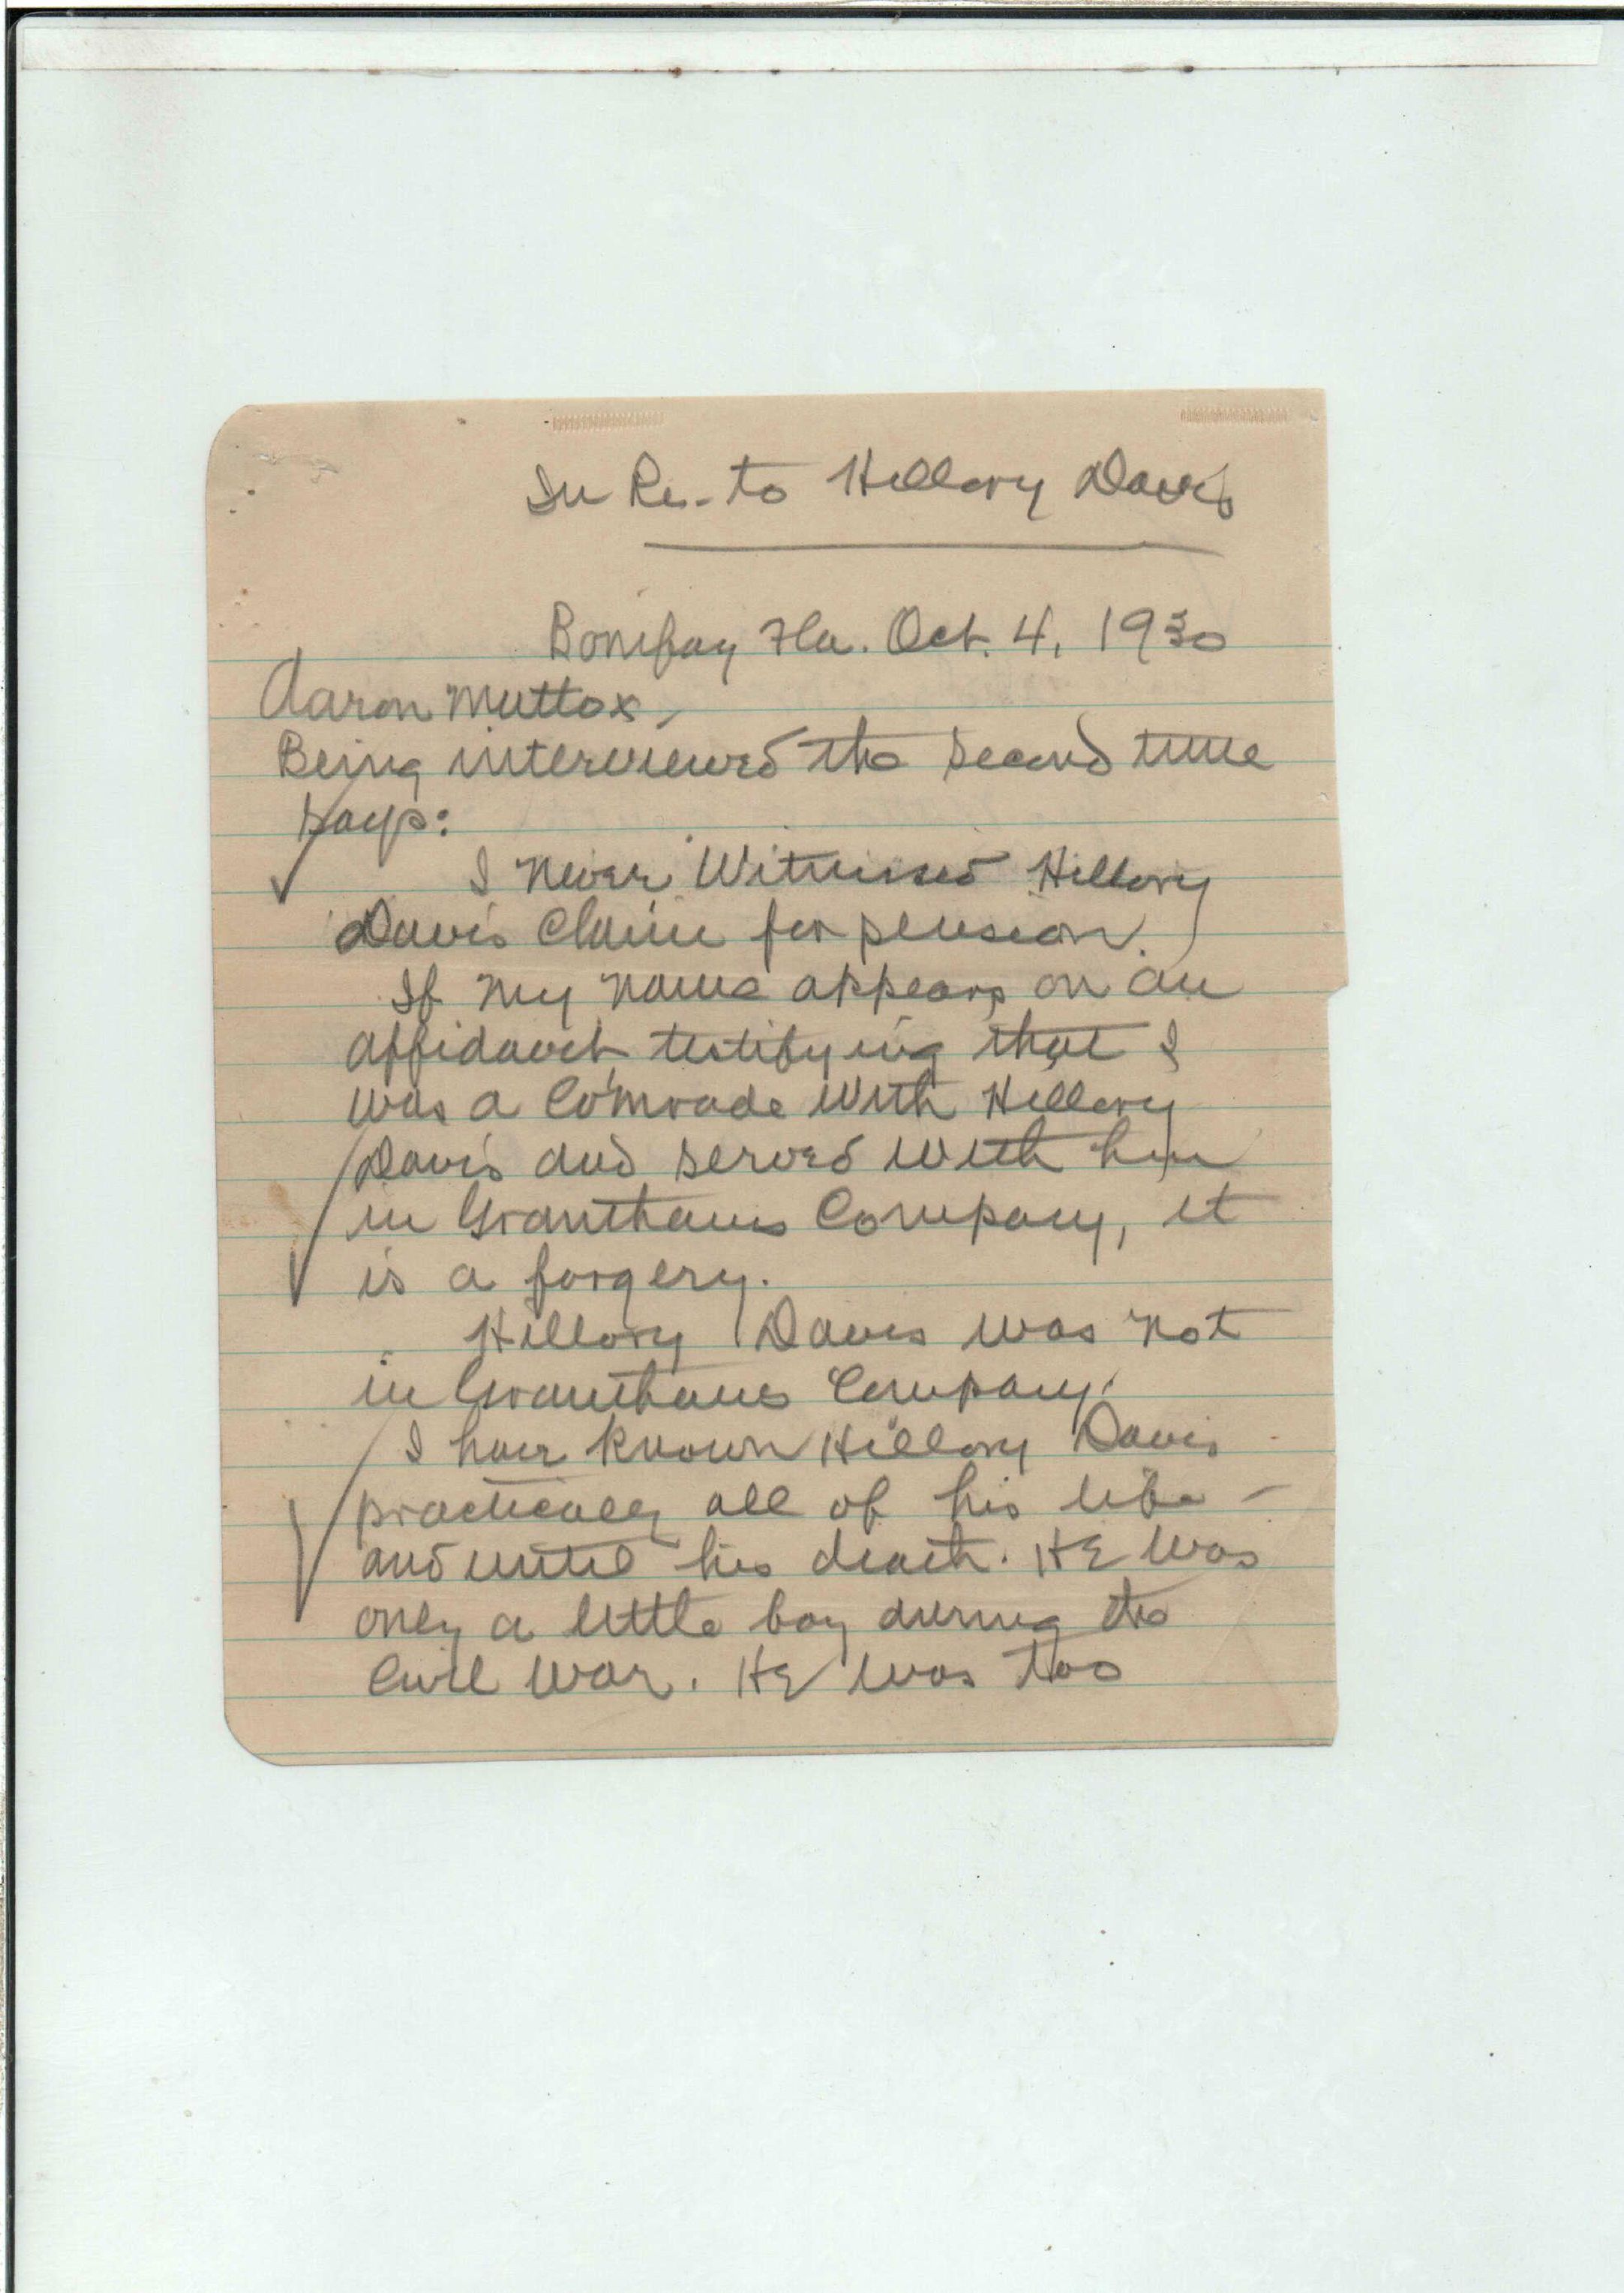 In Re. to Hillory Davis
Bonifay Fla. Oct. 4, 1930
Aaron Mattox,
Being interviewed the second time
says:
I never Witnessed Hillory
Davis Claim for pension.
If my name appears on an
affidavit testifying that I
was a Comrade With Hillory
Davis and served with him
in Granthams Company, it
is a forgery.
Hillory Davis was not
in Granthams Company.
I have known Hillory Davis
practically all of his life -
and until his death. HE Was
only a little boy during the
Civil War. HE Was too